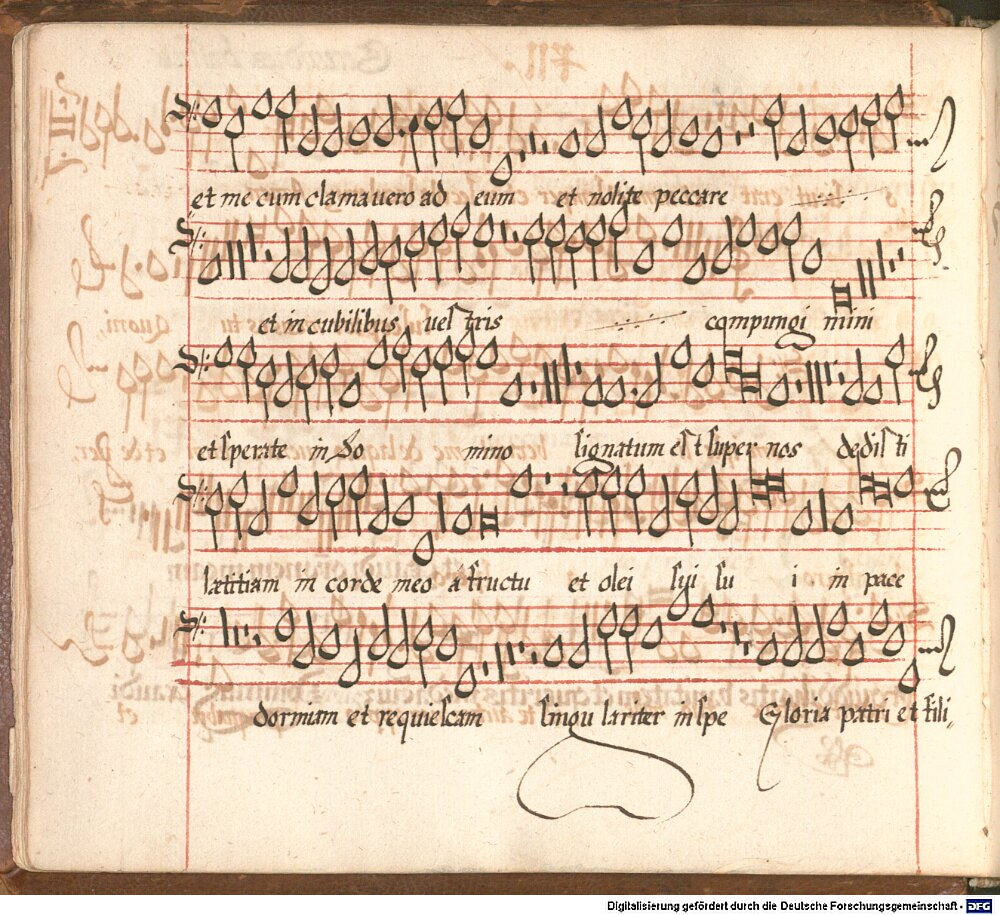 et me cum clamavero ad eum et nolite peccare
et in cubilibus vestris compungimini
et sperate in Do mino signatum est super nos dedisti
lætitiam in corde meo a fructu et olei syi su i in pace
dormiam et requiescam singu lariter in spe Gloria patri et fili
Digitalisierung gefördert durch die Deutsche Forschungsgemeinschaft - DFG